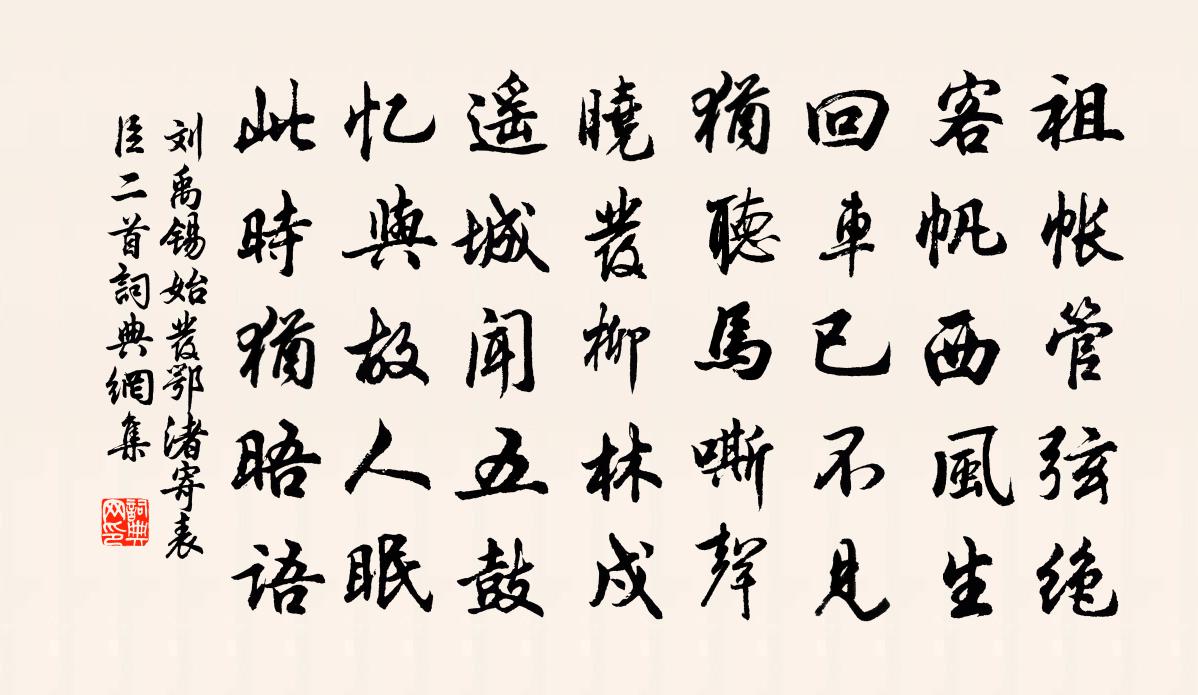 祖帐管弦绝
客帆西風生
回車已不見
猶聽馬嘶聲
曉發柳林戍
遥城闻五鼓
忆與故人眠
此時猶晤语
刘禹锡始發鄂渚寄表
臣二首詞典網集
詞典網印